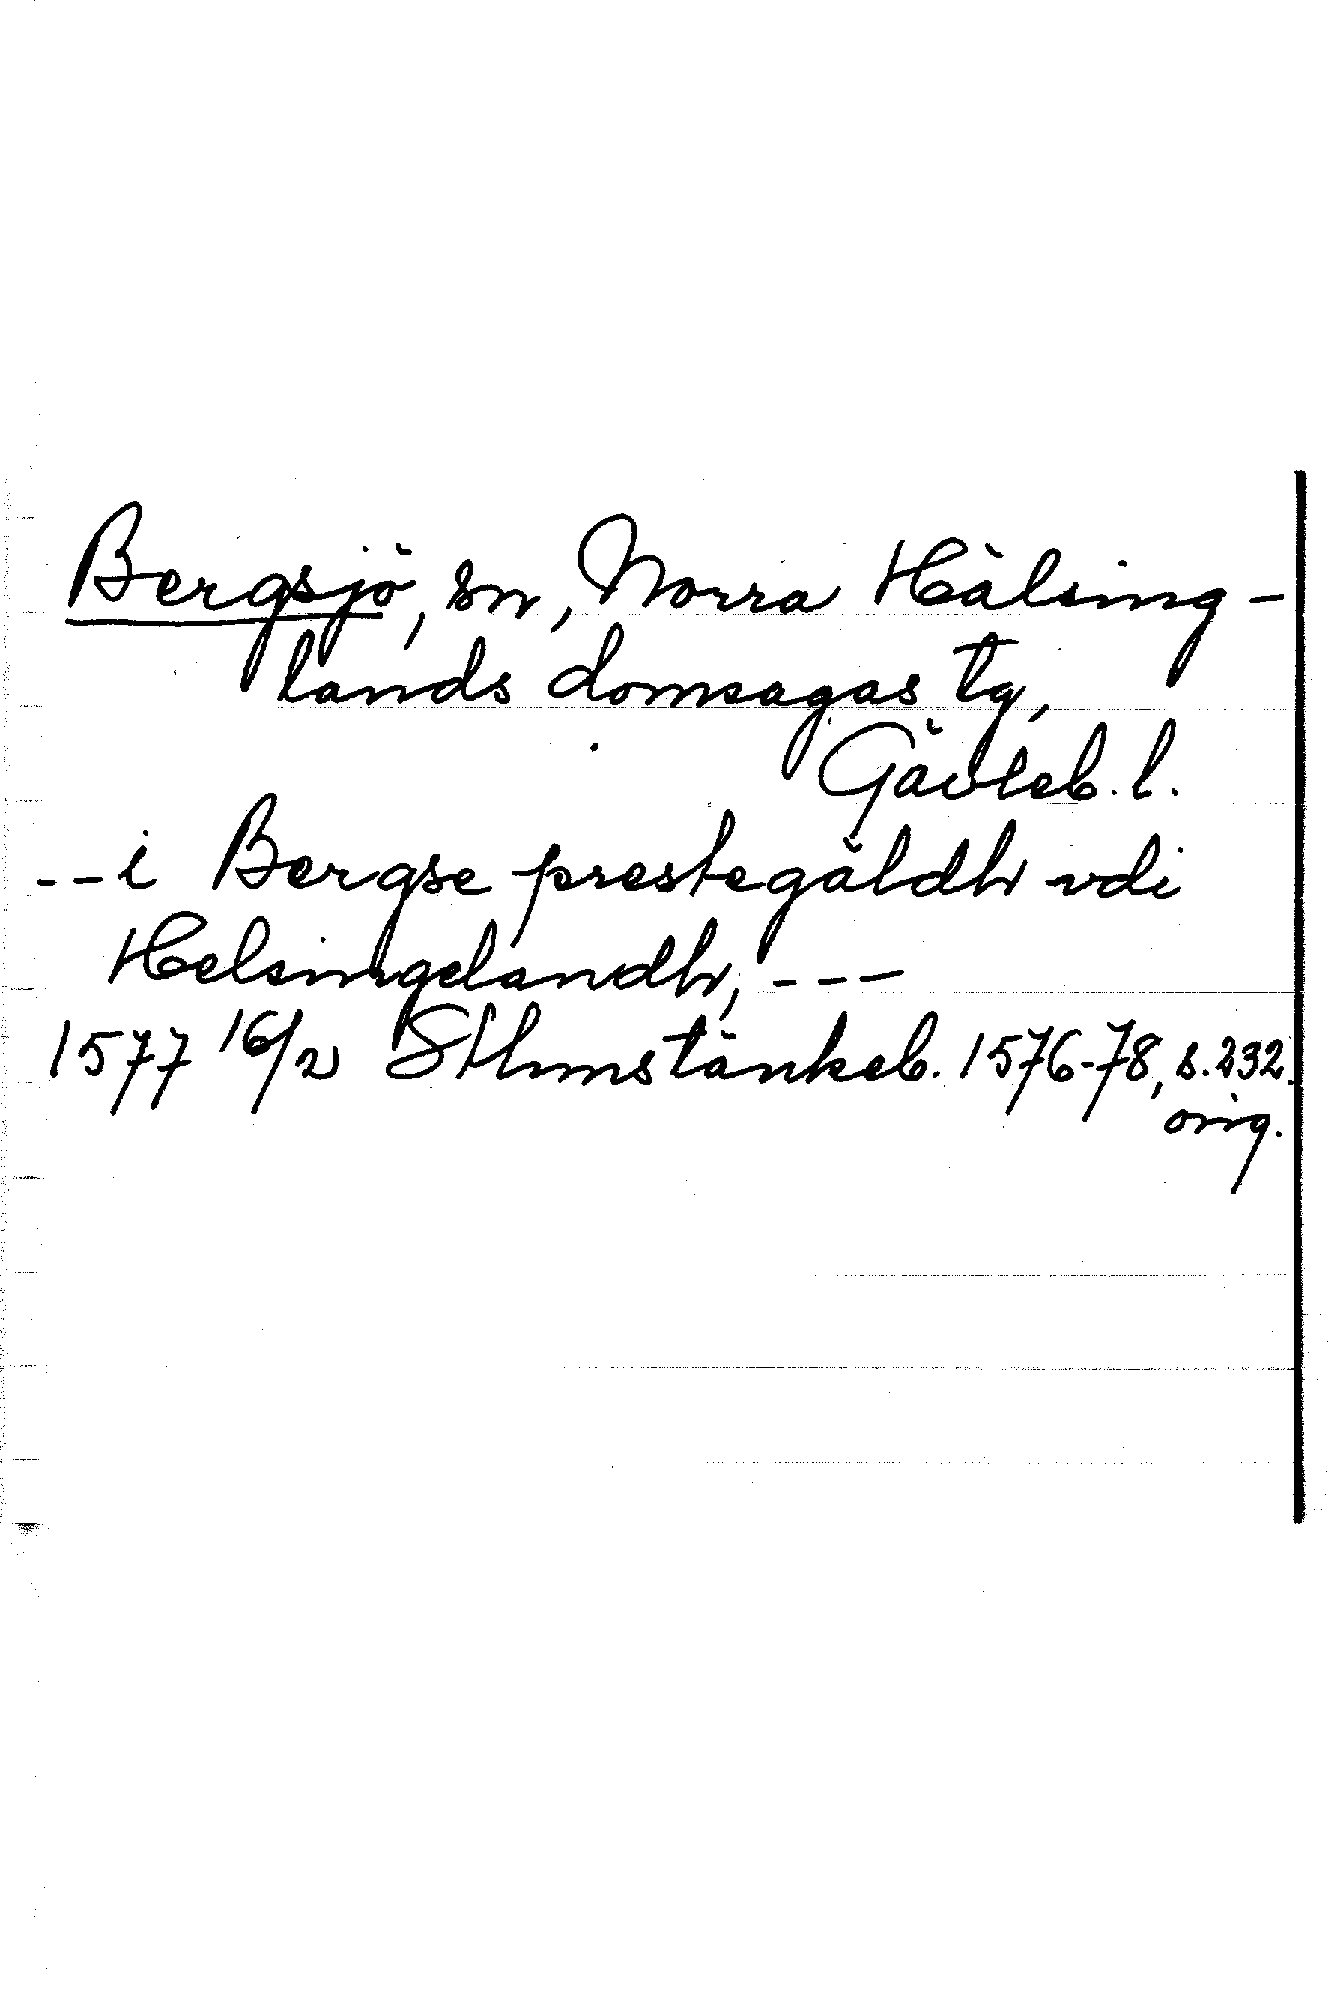 Bergsjö, sn, Norra Hälsing-
lands domsagas tg,
Gävleb. l.
--i Bergse prestegäldh vdi
Helsingelandh, ---
1577 16/2 Sthmstänkeb. 1576-78, s. 232.
orig.